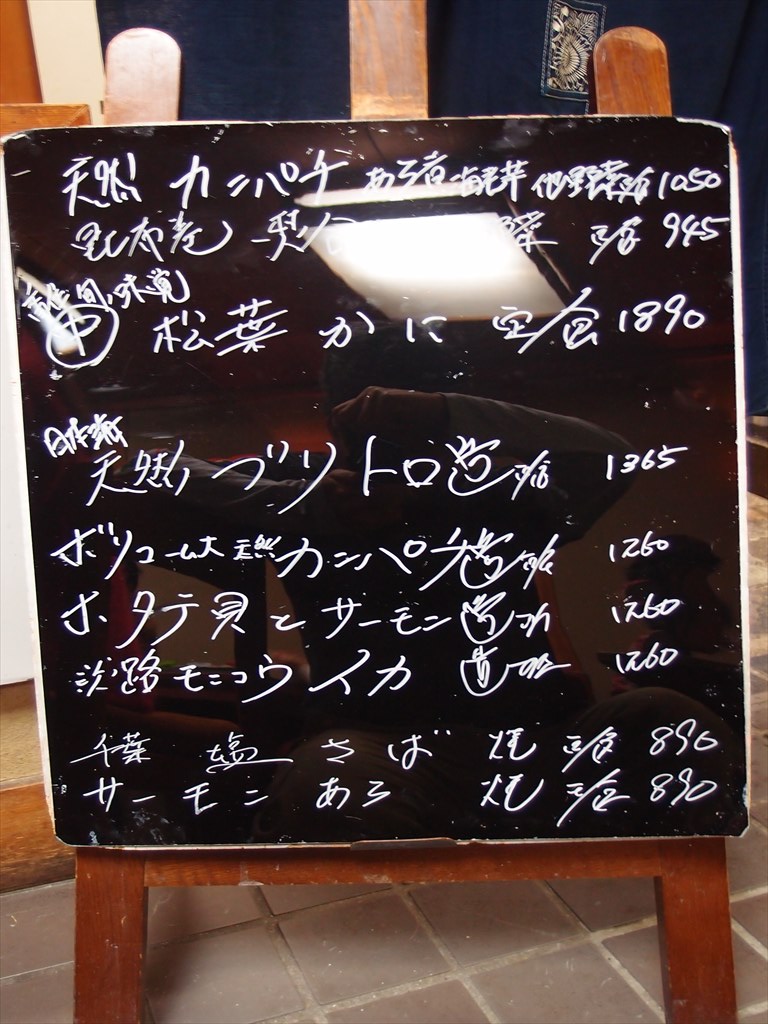 天然 カンパチ あら煮 海老芋 他野菜 1050
昆布巻 定食 945
旬の味覚
松葉 かに 定食 1890
天然 ブリトロ造 定食 1365
ボリューム大 天然 カンパチ造 定食 1260
ホタテ貝とサーモン造 1260
淡路モンコウイカ 造 1260
千葉 塩さば 焼 定食 890
サーモン あら 焼 定食 890